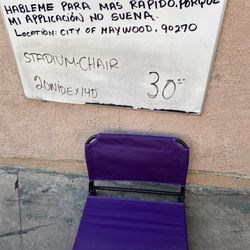 HABLEME PARA MAS RAPIDO, PORQUE
MI APLICACIÓN NO SUENA.
LOCATION: CITY OF MAYWOOD. 90270
STADIUM-CHAIR
20NIDEX14D 30